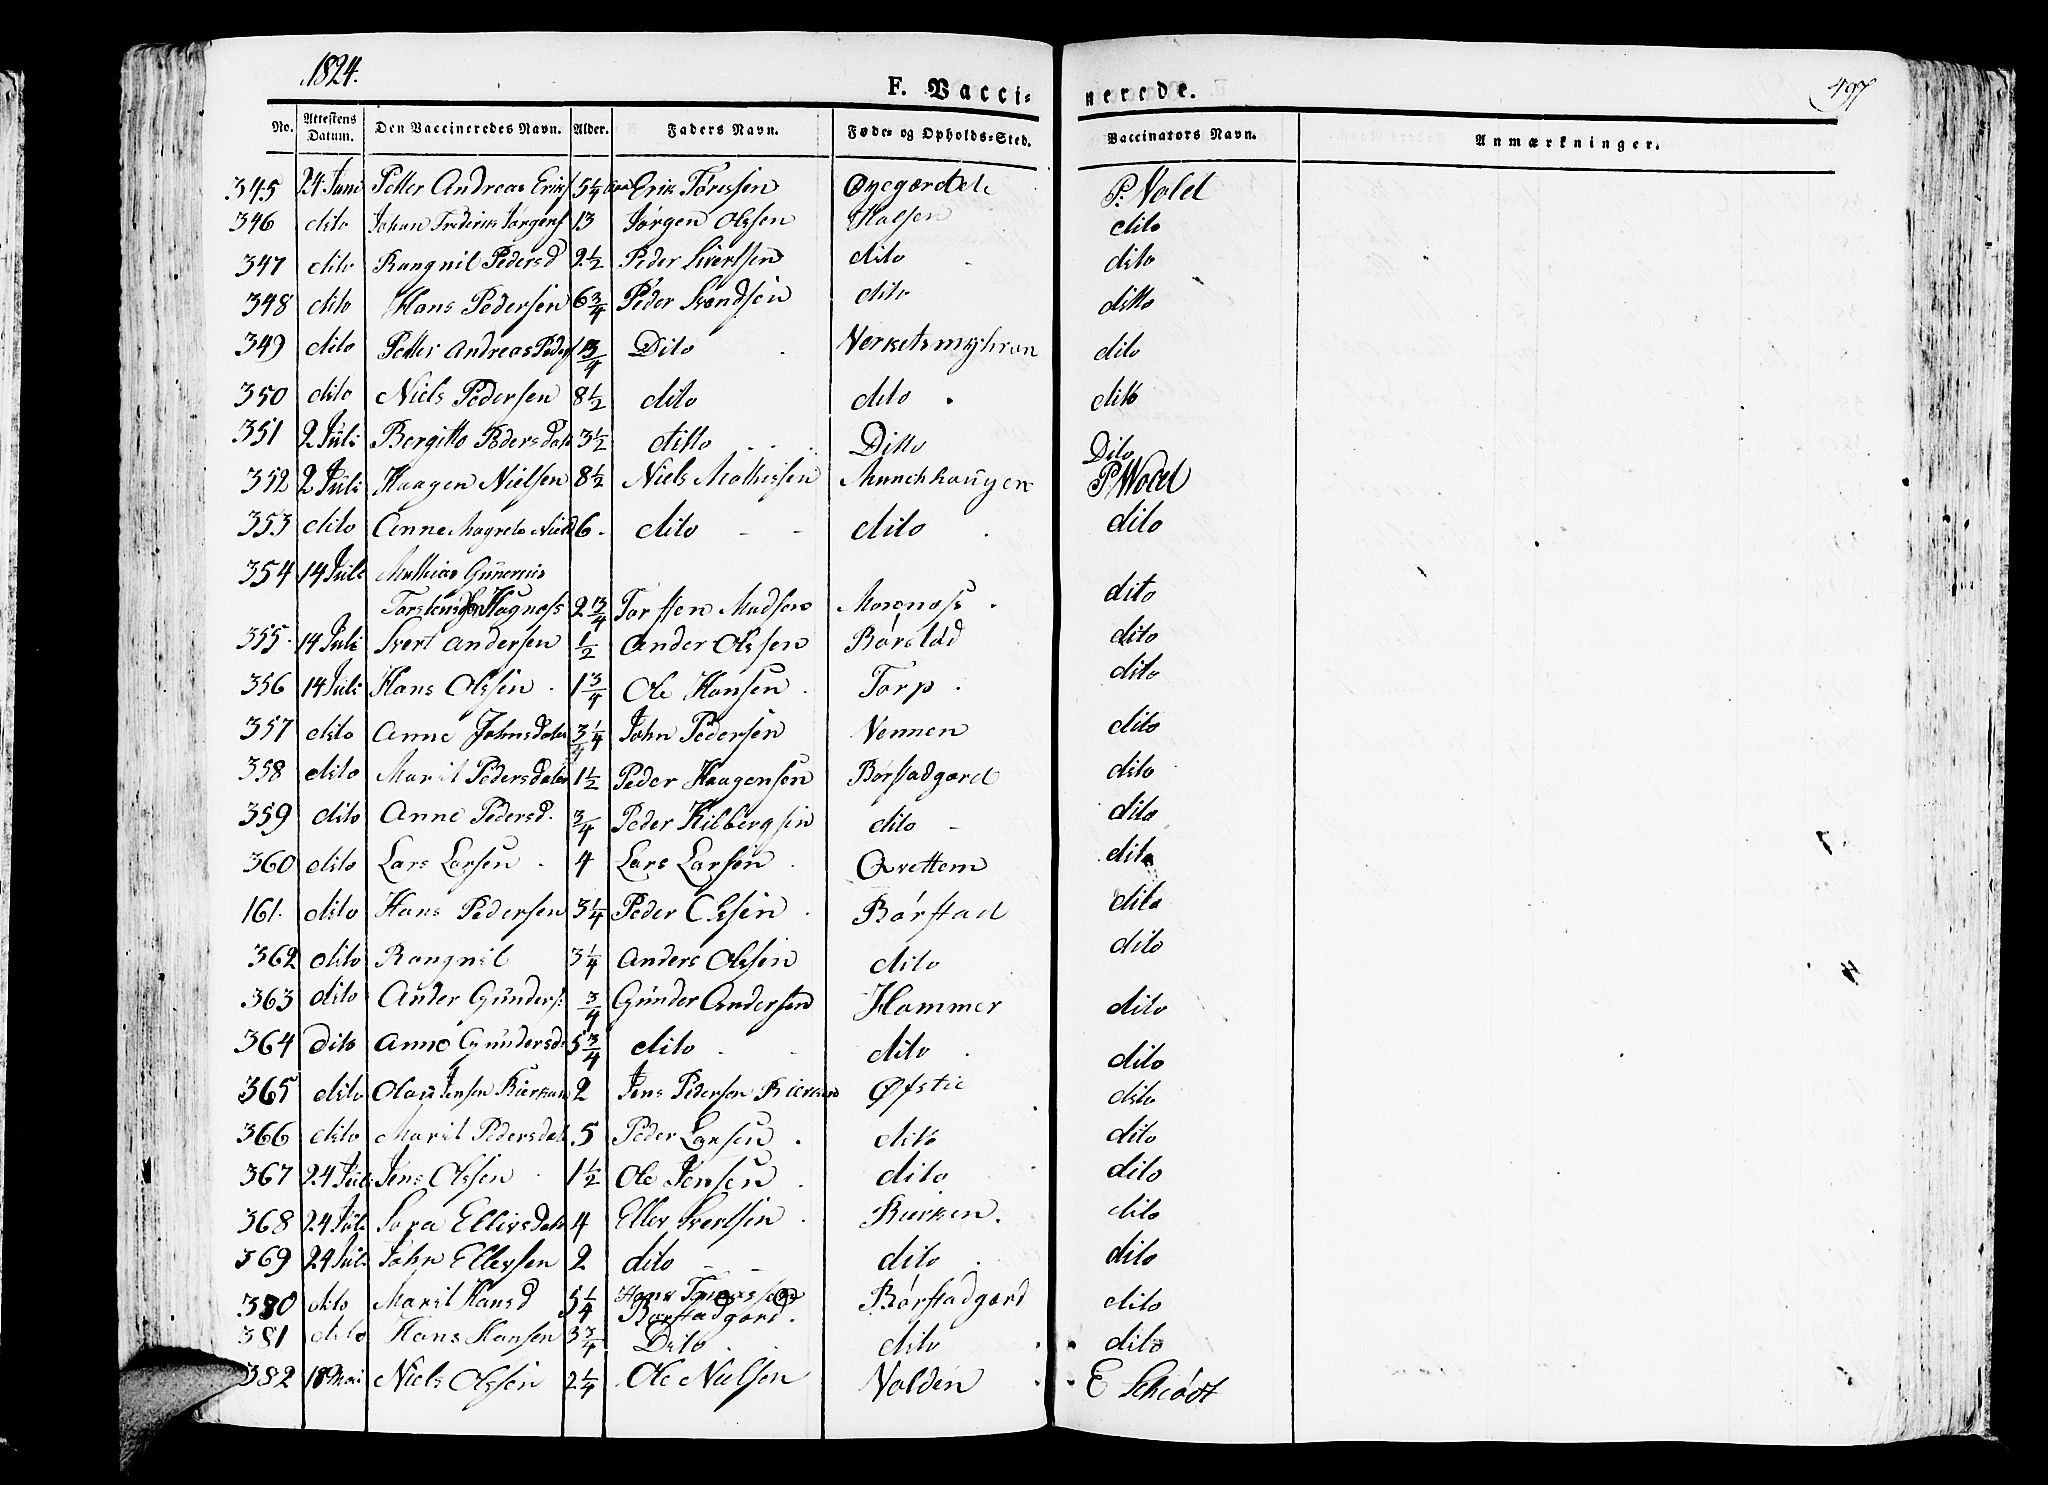 1824.
F. Vacci- nerede.
497
No. Attestens Datum. Den Vaccineredes Navn. Alder. Faders Navn. Føde- og Opholds-Sted. Vaccinators Navn. Anmærkninger.
345 24 Juni Petter Andreas Eriks 5 1/4 Erik Töressen P. Vold
346 dito Johan Frederik Jørgens 13 Jørgen Olssen Halsen dito
347 dito Rangnil Pedersd 2 1/2 Peder Sivertsen dito dito
348 dito Hans Pedersen 6 3/4 Peder Svendsen dito ditto
349 dito Petter Andreas Peders Dito dito
350 dito Niels Pedersen 8 1/2 dito dito dito
351 2 Juli Bergitto Pedersdat 3 1/2 ditto Ditto Dito
352 2 Juli Haagen Nielsen 8 1/2 Niels Mathissen Munchhaugen P Wold
353 dito Anne Magrete Nielsd 6 dito dito dito
354 14 Juli Mathias
2 3/4 Torsten Madsen dito
355 14 Juli Ivert Andersen 1/2 Ander Olssen Børstad dito
356 14 Juli Hans Olssen 1 3/4 Ole Hansen Torp dito
357 dito Anne Johnsdater 3 1/4 John Pedersen Vennen dito
358 dito Marit Pedersdater 1 1/2 Peder Haagensen Børstadgard dito
359 dito Anne Pedersd. 3/4 Peder Kilbergsen dito dito
360 dito Lars Larsen 4 Lars Larsen Qvettem dito
161. dito Hans Pedersen 3 1/4 Peder Olssen Børstad dito
362 dito Rangnil 3 1/4 Anders Olssen dito dito
363 dito Ander Gunders: 3/4 Gunder Andersen Hammer dito
364 dito Anne Gundersd 5 3/4 dito dito dito
365 dito Olau Jensen Bierkan 2 Jens Pedersen Øfstie dito
366 dito Marit Pedersdat 5 Peder Larsen dito dito
367 24 Juli Jens Olssen 1 1/2 Ole Jensen dito dito
368 24 Juli Ellevsdat 4 Ellev Ivertsen Bierken. dito
369 24 Juli John Ellevsen 2 dito dito dito
380 dito Marit Hansd 5 1/4 Hans Børstadgard dito
Børstadgard.
381 dito Hans Hansen 3 3/4 Dito dito dito
382 18 Mai Niels Olssen 2 1/4 Ole Nielsen Valden E Schiødt